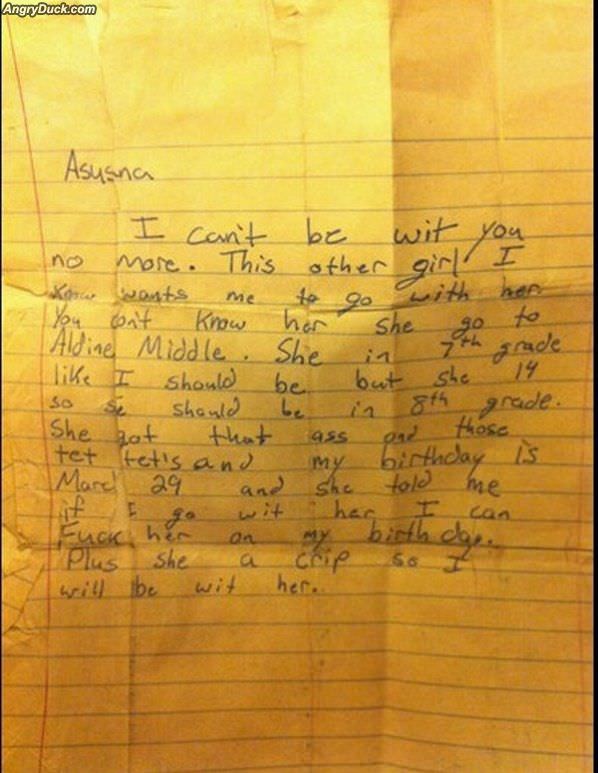 AngryDuck.com
Asusna
I can't be wit you
no more. This other girl I
know wants me to go with her.
You don't know her she go to
Aldine Middle. She in 7th grade
like I should be but she 14
so se should be in 8th grade.
She got that ass and those
tet tet's and my birthday is
Marc 29 and she told me
if I go wit her I can
Fuck her on my birthday.
Plus she a crip so I
will be wit her.